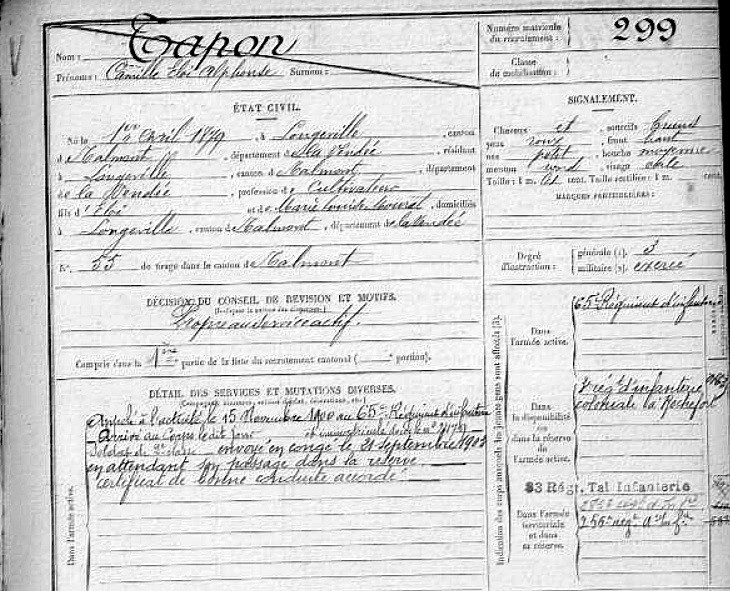 Nom : Tapon
Prénoms : Camille Eloi Alphonse Surnom :
Numéro matricule
du recrutement :
299
Classe
de mobilisation :
ÉTAT CIVIL.
Né le 1er Avril 1879, à Longeville, canton
de Talmont, département de la Vendée, résidant
à Longeville, canton de Talmont, département
de la Vendée, profession de Cultivateur
fils d'Eloi et de Marie Louise, domiciliés
à Longeville, canton de Talmont, département de la Vendée
N° 55 de tirage dans le canton de Talmont
SIGNALEMENT.
Cheveux et sourcils
yeux roux, front haut
nez petit, bouche moyenne
menton rond, visage ovale
Taille : 1 m. cent. Taille rectifiée : 1 m. cent.
MARQUES PARTICULIÈRES :
Degré
d'instruction :
générale (1). 3
militaire (2). exercé
DÉCISION DU CONSEIL DE REVISION ET MOTIFS.
Propre au service actif.
Compris dans la 1ère partie de la liste du recrutement cantonal ( portion).
DÉTAIL DES SERVICES ET MUTATIONS DIVERSES.
Appelé à l'activité le 15 Novembre 1900 au 65e Régiment d'infanterie
Arrivé au Corps le dit jour et immatriculé sous le n°
Soldat de 2e classe envoyé en congé le 21 septembre 1903
en attendant son passage dans la réserve.
certificat de bonne conduite accordé.
Dans l'armée active.
Indication des corps auxquels les jeunes gens sont affectés (3).
Dans
l'armée active.
65e Régiment d'infanterie
Dans
la disponibilité
ou dans
la réserve
de
l'armée active.
rég. d'infanterie
coloniale La Rochefort
Dans l'armée
territoriale
et dans
sa réserve.
83 Régt. Tal Infanterie
256e rég. d'Inf.